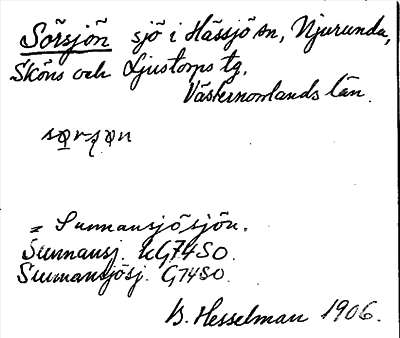 Sörsjön sjö i Hässjö sn, Njurunda,
Sköns och Ljustorps tg.
Västernorrlands län.
= Sunnansjösjön.
Sunnansj. kG74SO.
Sunnansjösj. G74SO.
B. Hesselman 1906.